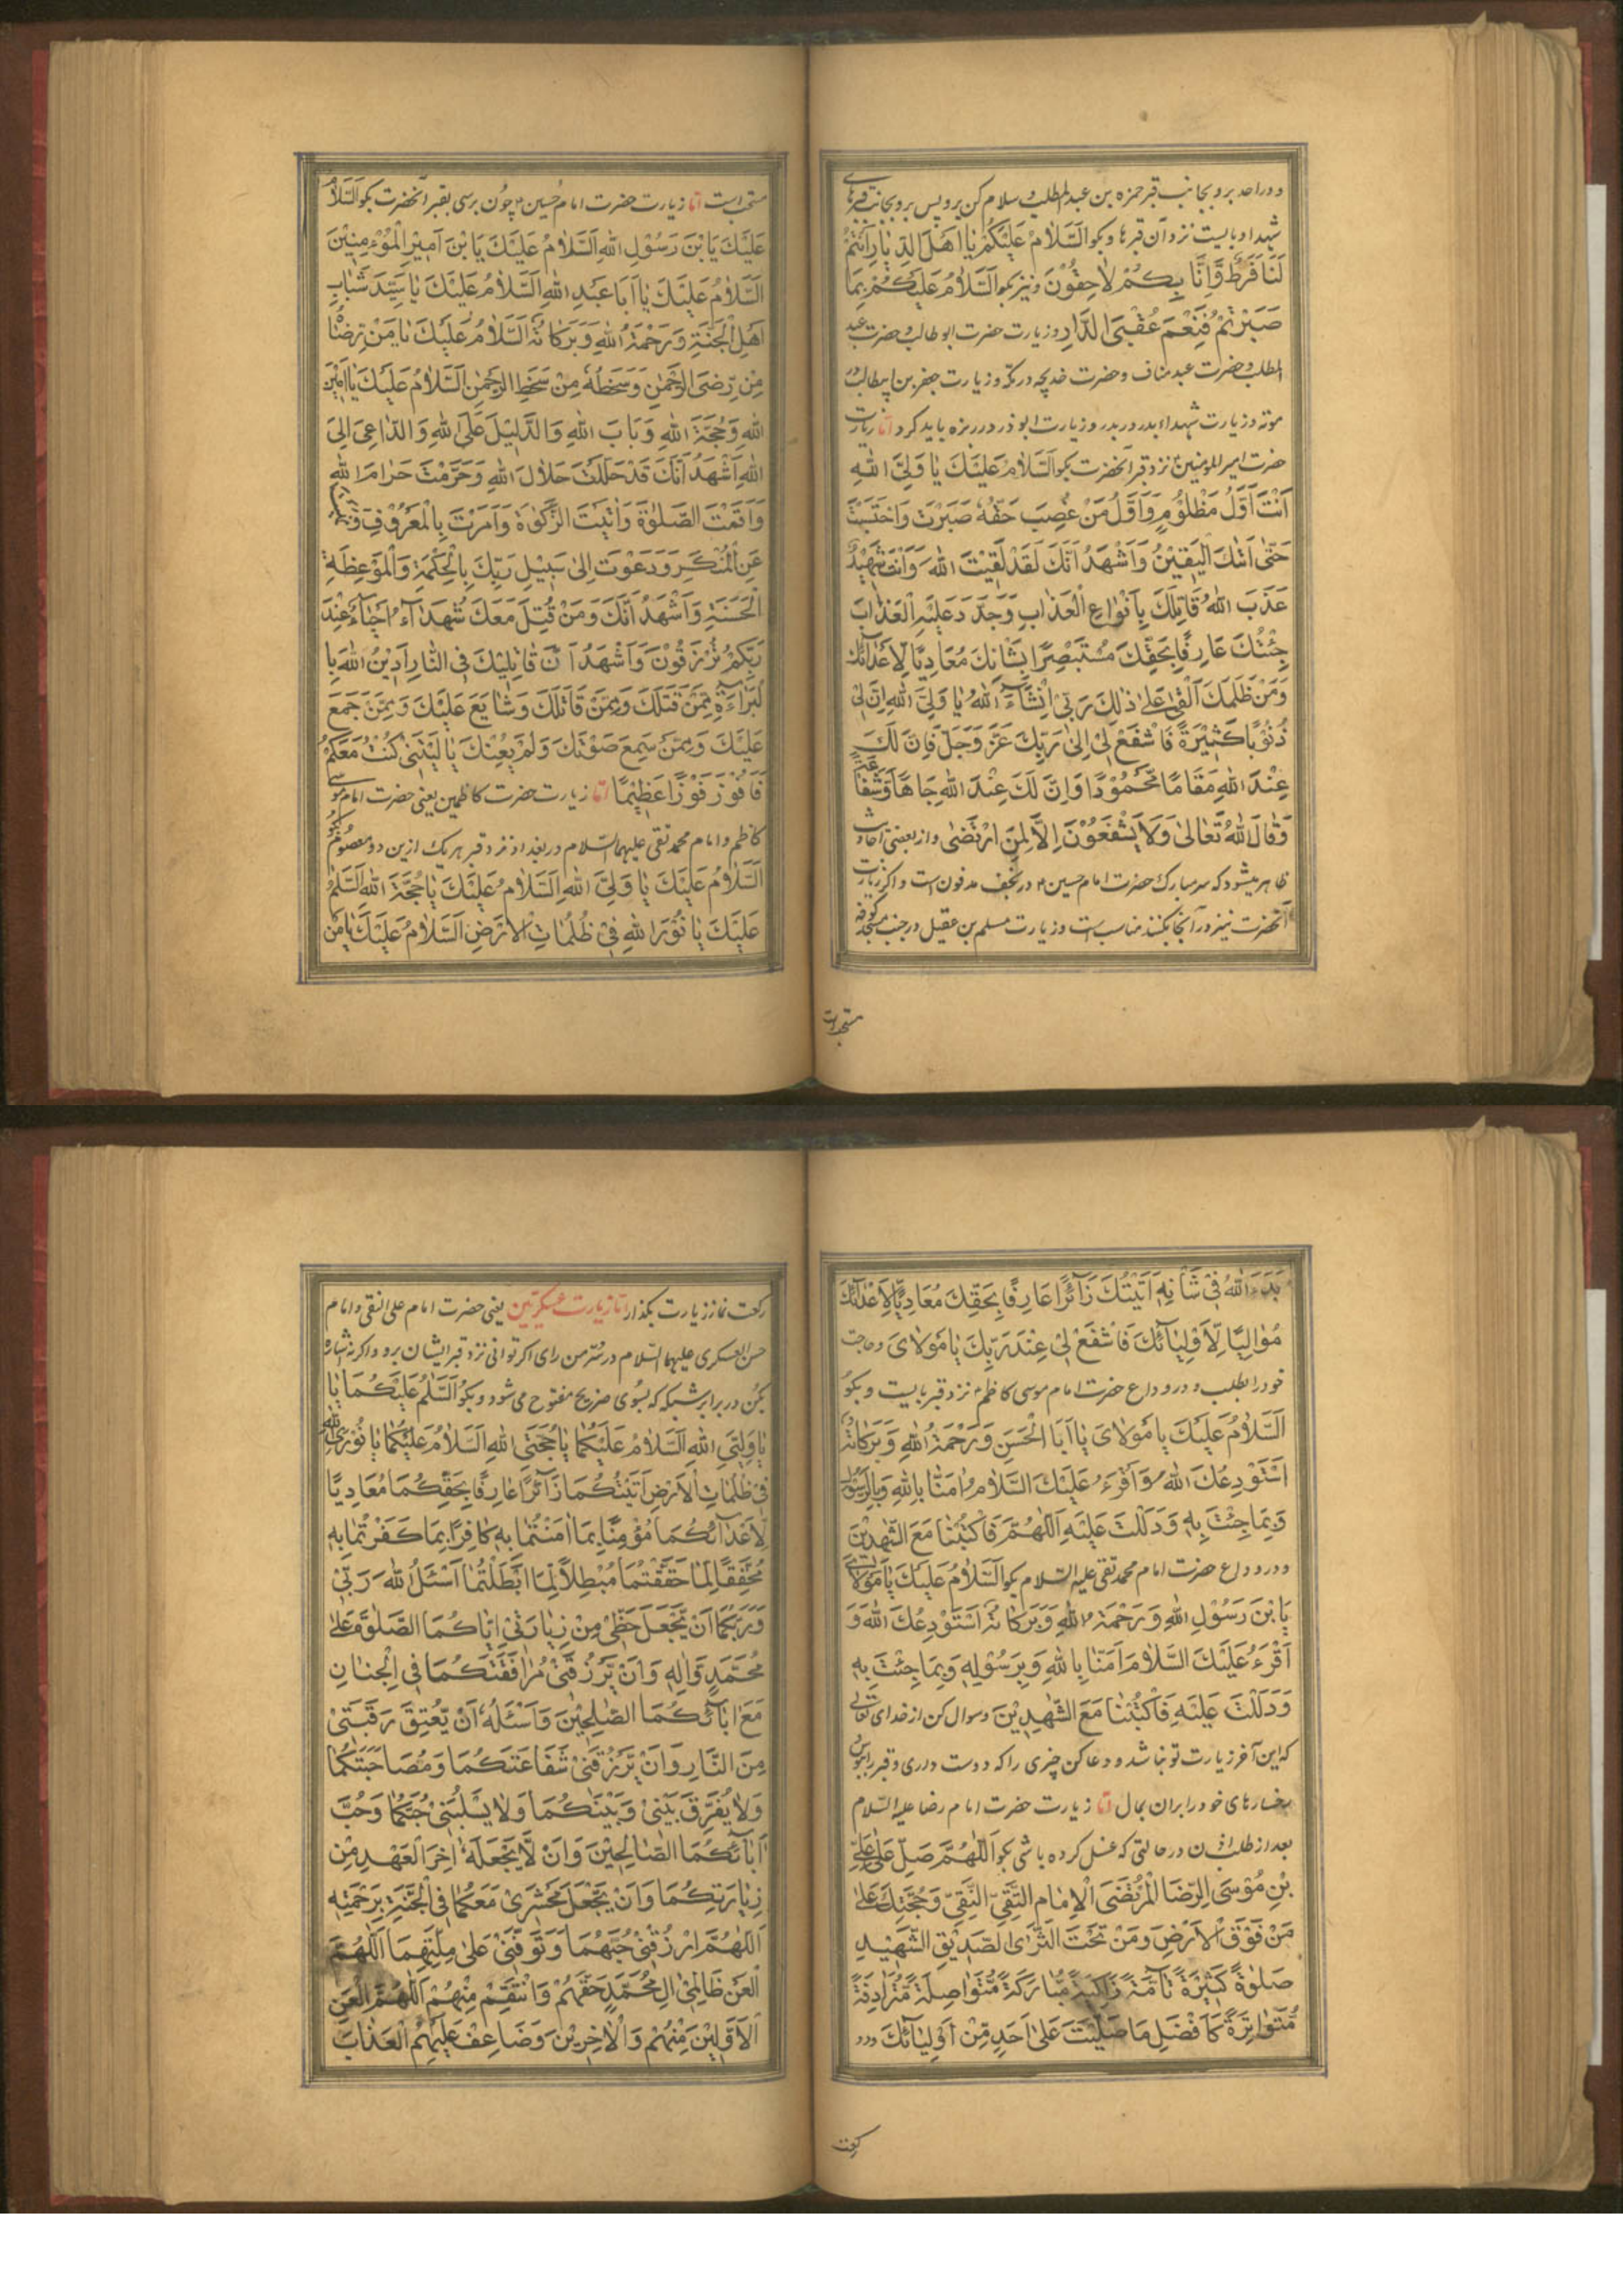 و در احد برو بجانب قبر حمزه بن عبدالمطلب و سلام کن برو پس برو بجانب قبرهای
شهدا و بایست نزد آن قبرها و بکو اَلسَّلَامُ عَلَيْكُمْ يَا اَهْلَ الدِّيَارِ اَنْتُمْ
لَنَا فَرَطٌ وَّاِنَّا بِكُمْ لَاحِقُوْنَ و نیز بکو اَلسَّلَامُ عَلَيْكُمْ بِمَا
صَبَرْتُمْ فَنِعْمَ عُقْبَى الدَّارِ و زیارت حضرت ابو طالب و حضرت عبد
المطلب و حضرت عبد مناف و حضرت خدیجه در مکه و زیارت جعفر بن ابیطالب در
موته و زیارت شهداء بدر در بدر و زیارت ابوذر در ربزه باید کرد اما زیارت
حضرت امیر المومنین نزد قبر آنحضرت بکو اَلسَّلَامُ عَلَيْكَ يَا وَلِيَّ اللّٰهِ
اَنْتَ اَوَّلُ مَظْلُوْمٍ وَّاَوَّلُ مَنْ غُصِبَ حَقُّهٗ صَبَرْتَ وَاحْتَسَبْتَ
حَتّٰى اَتٰىكَ الْيَقِيْنُ وَاَشْهَدُ اَنَّكَ لَقَدْ لَقِيْتَ اللّٰهَ وَاَنْتَ شَهِيْدٌ
عَذَّبَ اللّٰهُ قَاتِلَكَ بِاَنْوَاعِ الْعَذَابِ وَجَدَّدَ عَلَيْهِ الْعَذَابَ
جِئْتُكَ عَارِفًا بِحَقِّكَ مُسْتَبْصِرًا بِشَانِكَ مُعَادِيًا لِاَعْدَائِكَ
وَمَنْ ظَلَمَكَ اَلْقٰى عَلٰى ذٰلِكَ رَبِّيْ اِنْشَاءَ اللّٰهُ يَا وَلِيَّ اللّٰهِ اِنَّ لِيْ
ذُنُوْبًا كَثِيْرَةً فَاشْفَعْ لِيْ اِلٰى رَبِّكَ عَزَّ وَجَلَّ فَاِنَّ لَكَ
عِنْدَ اللّٰهِ مَقَامًا مَّحْمُوْدًا وَاِنَّ لَكَ عِنْدَ اللّٰهِ جَاهًا وَّشَفَاعَةً
وَقَالَ اللّٰهُ تَعَالٰى وَلَا يَشْفَعُوْنَ اِلَّا لِمَنِ ارْتَضٰى و از بعضی احادیث
ظاهر میشود که سر مبارک حضرت امام حسین در نجف مدفون است و اکر زیارت
آنحضرت نیز در آنجا بکنند مناسب است و زیارت مسلم بن عقیل در جنب مسجد کوفه
مستحب است
مستحب است اما زیارت حضرت امام حُسین چون برسی بقبر آنحضرت بکو اَلسَّلَامُ
عَلَيْكَ يَا بْنَ رَسُوْلِ اللّٰهِ اَلسَّلَامُ عَلَيْكَ يَا بْنَ اَمِيْرِ الْمُؤْمِنِيْنَ
اَلسَّلَامُ عَلَيْكَ يَا اَبَا عَبْدِ اللّٰهِ اَلسَّلَامُ عَلَيْكَ يَا سَيِّدَ شَبَابِ
اَهْلِ الْجَنَّةِ وَرَحْمَةُ اللّٰهِ وَبَرَكَاتُهٗ اَلسَّلَامُ عَلَيْكَ يَا مَنْ رِضَاهُ
مِنْ رِّضَى الرَّحْمٰنِ وَسَخَطُهٗ مِنْ سَخَطِ الرَّحْمٰنِ اَلسَّلَامُ عَلَيْكَ يَا اَمِيْنَ
اللّٰهِ وَحُجَّةَ اللّٰهِ وَبَابَ اللّٰهِ وَالدَّلِيْلَ عَلَى اللّٰهِ وَالدَّاعِيَ اِلَى
اللّٰهِ اَشْهَدُ اَنَّكَ قَدْ حَلَّلْتَ حَلَالَ اللّٰهِ وَحَرَّمْتَ حَرَامَ اللّٰهِ
وَاَقَمْتَ الصَّلٰوةَ وَاٰتَيْتَ الزَّكٰوةَ وَاَمَرْتَ بِالْمَعْرُوْفِ وَنَهَيْتَ
عَنِ الْمُنْكَرِ وَدَعَوْتَ اِلٰى سَبِيْلِ رَبِّكَ بِالْحِكْمَةِ وَالْمَوْعِظَةِ
الْحَسَنَةِ وَاَشْهَدُ اَنَّكَ وَمَنْ قُتِلَ مَعَكَ شُهَدَاءُ اَحْيَاءٌ عِنْدَ
رَبِّكُمْ تُرْزَقُوْنَ وَاَشْهَدُ اَنَّ قَاتِلِيْكَ فِي النَّارِ اَدِيْنُ اللّٰهَ بِا
لْبَرَاءَةِ مِمَّنْ قَتَلَكَ وَمِمَّنْ قَاتَلَكَ وَشَايَعَ عَلَيْكَ وَمِمَّنْ جَمَعَ
عَلَيْكَ وَمِمَّنْ سَمِعَ صَوْتَكَ وَلَمْ يُعِنْكَ يَا لَيْتَنِيْ كُنْتُ مَعَكُمْ
فَاَفُوْزَ فَوْزًا عَظِيْمًا اما زیارت حضرت کاظمین یعنی حضرت امام موسی
کاظم و امام محمد تقی علیهما السلام در بغداد نزد قبر هر یک ازین دو معصوم بکو
اَلسَّلَامُ عَلَيْكَ يَا وَلِيَّ اللّٰهِ اَلسَّلَامُ عَلَيْكَ يَا حُجَّةَ اللّٰهِ اَلسَّلَمُ
عَلَيْكَ يَا نُوْرَ اللّٰهِ فِيْ ظُلُمَاتِ الْاَرْضِ اَلسَّلَامُ عَلَيْكَ يَا مَنْ
بَدَءَ اللّٰهُ فِيْ شَأْنِهٖ اَتَيْتُكَ زَائِرًا عَارِفًا بِحَقِّكَ مُعَادِيًا لِاَعْدَائِكَ
مُوَالِيًا لِاَوْلِيَائِكَ فَاشْفَعْ لِيْ عِنْدَ رَبِّكَ يَا مَوْلَايَ و حاجت
خود را بطلب و در وداع حضرت امام موسی کاظم نزد قبر بایست و بکو
اَلسَّلَامُ عَلَيْكَ يَا مَوْلَايَ يَا اَبَا الْحَسَنِ وَرَحْمَةُ اللّٰهِ وَبَرَكَاتُهٗ
اَسْتَوْدِعُكَ اللّٰهَ وَاَقْرَءُ عَلَيْكَ السَّلَامَ اٰمَنَّا بِاللّٰهِ وَبِالرَّسُوْلِ
وَبِمَا جِئْتَ بِهٖ وَدَلَلْتَ عَلَيْهِ اَللّٰهُمَّ فَاكْتُبْنَا مَعَ الشّٰهِدِيْنَ
و در وداع حضرت امام محمد تقی علیه السلام بکو اَلسَّلَامُ عَلَيْكَ يَا مَوْلَايَ
يَا بْنَ رَسُوْلِ اللّٰهِ وَرَحْمَةُ اللّٰهِ وَبَرَكَاتُهٗ اَسْتَوْدِعُكَ اللّٰهَ وَ
اَقْرَءُ عَلَيْكَ السَّلَامَ اٰمَنَّا بِاللّٰهِ وَبِرَسُوْلِهٖ وَبِمَا جِئْتَ بِهٖ
وَدَلَلْتَ عَلَيْهِ فَاكْتُبْنَا مَعَ الشّٰهِدِيْنَ و سوال کن از خدای تعالی
که این آخر زیارت تو نباشد و دعا کن چیزی را که دوست داری و قبر را ببوس
رخسارهای خود را بران بمال اما زیارت حضرت امام رضا علیه السلام
بعد از طلب اذن در حالتی که غسل کرده باشی بکو اَللّٰهُمَّ صَلِّ عَلٰى عَلِيِّ
بْنِ مُوْسَى الرِّضَا الْمُرْتَضَى الْاِمَامِ التَّقِيِّ النَّقِيِّ وَحُجَّتِكَ عَلٰى
مَنْ فَوْقَ الْاَرْضِ وَمَنْ تَحْتَ الثَّرٰى الصِّدِّيْقِ الشَّهِيْدِ
صَلٰوةً كَثِيْرَةً تَامَّةً زَاكِيَةً مُّبَارَكَةً مُّتَوَاصِلَةً مُّتَرَادِفَةً
مُّتَوَاتِرَةً كَاَفْضَلِ مَا صَلَّيْتَ عَلٰى اَحَدٍ مِّنْ اَوْلِيَائِكَ و دو
رکعت
رکعت نماز زیارت بکذار اما زیارت عسکریین یعنی حضرت امام علی النقی و امام
حسن العسکری علیهما السلام در سر من رای اکر توانی نزد قبر ایشان برو و اکر نه اشاره
بکن در برابر شبکه که بسوی ضریح مفتوح می شود و بکو اَلسَّلَمُ عَلَيْكُمَا يَا
يَا وَلِيَّيِ اللّٰهِ اَلسَّلَامُ عَلَيْكُمَا يَا حُجَّتَيِ اللّٰهِ اَلسَّلَامُ عَلَيْكُمَا يَا نُوْرَيِ اللّٰهِ
فِيْ ظُلُمَاتِ الْاَرْضِ اَتَيْتُكُمَا زَائِرًا عَارِفًا بِحَقِّكُمَا مُعَادِيًا
لِاَعْدَائِكُمَا مُؤْمِنًا بِمَا اٰمَنْتُمَا بِهٖ كَافِرًا بِمَا كَفَرْتُمَا بِهٖ
مُحَقِّقًا لِمَا حَقَّقْتُمَا مُبْطِلًا لِمَا اَبْطَلْتُمَا اَسْئَلُ اللّٰهَ رَبِّيْ
وَرَبَّكُمَا اَنْ يَّجْعَلَ حَظِّيْ مِنْ زِيَارَتِيْ اِيَّاكُمَا الصَّلٰوةَ عَلٰى
مُحَمَّدٍ وَّاٰلِهٖ وَاَنْ يَّرْزُقَنِيْ مُرَافَقَتَكُمَا فِي الْجِنَانِ
مَعَ اٰبَائِكُمَا الصّٰلِحِيْنَ وَاَسْئَلُهٗ اَنْ يُّعْتِقَ رَقَبَتِيْ
مِنَ النَّارِ وَاَنْ يَّرْزُقَنِيْ شَفَاعَتَكُمَا وَمُصَاحَبَتَكُمَا
وَلَا يُفَرِّقَ بَيْنِيْ وَبَيْنَكُمَا وَلَا يَسْلُبَنِيْ حُبَّكُمَا وَحُبَّ
اٰبَائِكُمَا الصَّالِحِيْنَ وَاَنْ لَّا يَجْعَلَهٗ اٰخِرَ الْعَهْدِ مِنْ
زِيَارَتِكُمَا وَاَنْ يَّجْعَلَ مَحْشَرِيْ مَعَكُمَا فِي الْجَنَّةِ بِرَحْمَتِهٖ
اَللّٰهُمَّ ارْزُقْنِيْ حُبَّهُمَا وَتَوَفَّنِيْ عَلٰى مِلَّتِهِمَا اَللّٰهُمَّ
الْعَنْ ظَالِمِيْ اٰلِ مُحَمَّدٍ حَقَّهُمْ وَانْتَقِمْ مِنْهُمْ اَللّٰهُمَّ الْعَنِ
الْاَوَّلِيْنَ مِنْهُمْ وَالْاٰخِرِيْنَ وَضَاعِفْ عَلَيْهِمُ الْعَذَابَ